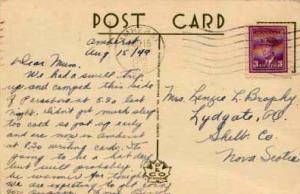 POST CARD
Amherst
Aug 15/49
Dear Mum.
We had a swell trip
up and camped this side
of Parrsboro at 5:30 last
night. Didn't get much sleep
too cold so got up early
and are now in Amherst
at 8:30 writing cards. It's
going to be a hot day
but will probably
be warmer for tonight
we are expecting to get
Mrs Lenzie L. Brophy
Lydgate, P.O.
Shelb. Co.
Nova Scotia
3 3